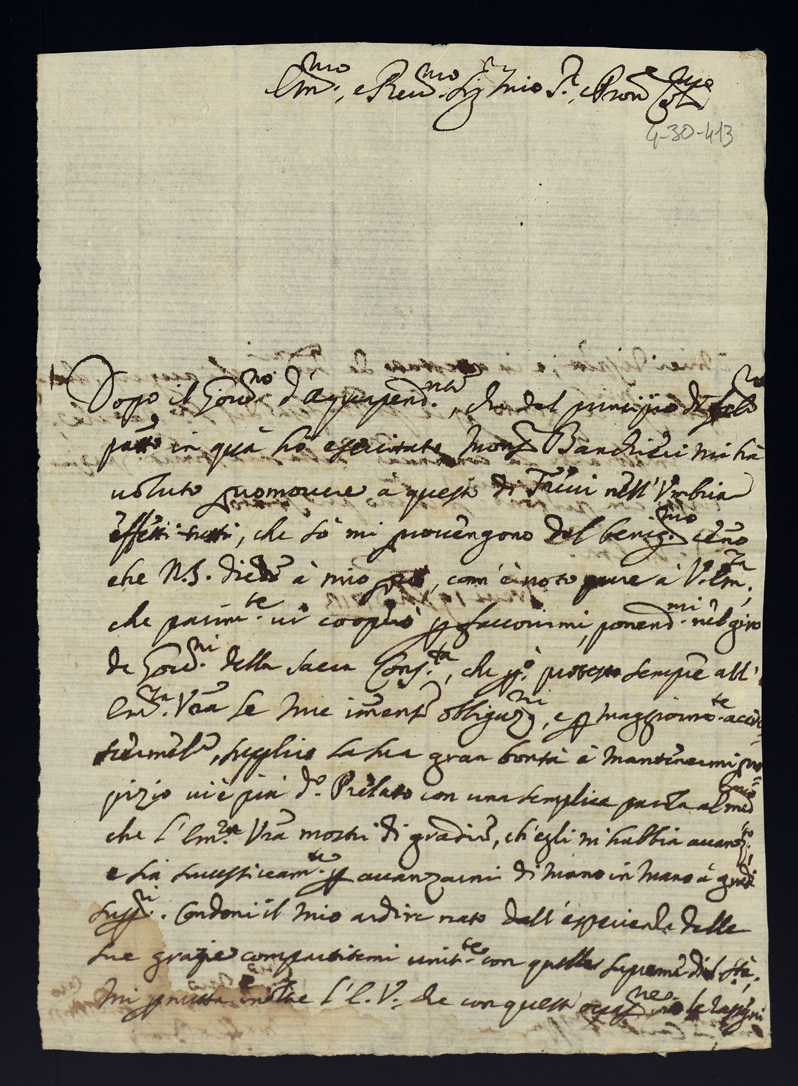 Em.mo, e Rev.mo Sig.r mio S.r, e Pron. Col.mo
4-30-413
Dopo il Gover.no d'Aquapend.nte, che dal principio di
in quà hò esercitato, Mons.r Banchieri mi hà
voluto promovere à questo di Trevi nell'Umbria
effetti tutti, che sò mi provengono dal benig.mo cenno
che N.S. diede à mio prò, com'è noto pure à V. Em.za,
che parim.te vi cooperò p favorirmi, ponend.mi nel giro
de Gover.ni della Sacra Cons.ta, che p.ò protesto sempre all'
Em.za Vra le mie immense obligaz.ni, e p maggiorm.te
supplico la sua gran bontà à mantenermi pro=
pizio viè più d.o Prelato con una semplice parola al med.mo
che l'Em.za Vra mostri di gradire, ch'egli mi habbia avanz.to,
e sia successivam.te p avanzarmi di mano in mano à gradi
Condoni il mio ardire nato dall'esperienza delle
sue grazie compartitemi unit.te con quelle
Mi permetta inoltre l'E.V. che con questa